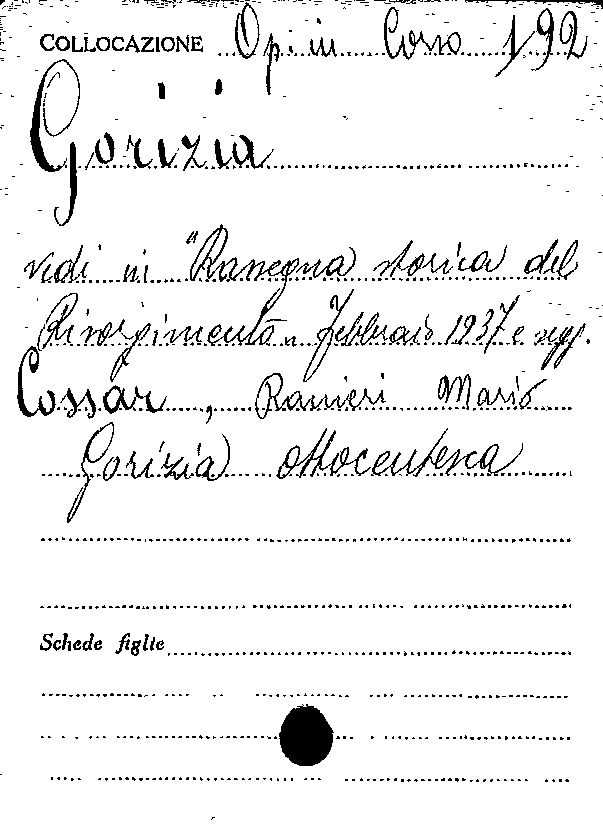 COLLOCAZIONE Op. in Corso 192
Gorizia
vedi in "Rassegna storica del
Risorgimento" Febbraio 1937 e segg.
Cossar, Ranieri Mario
Gorizia ottocentesca
Schede figlie